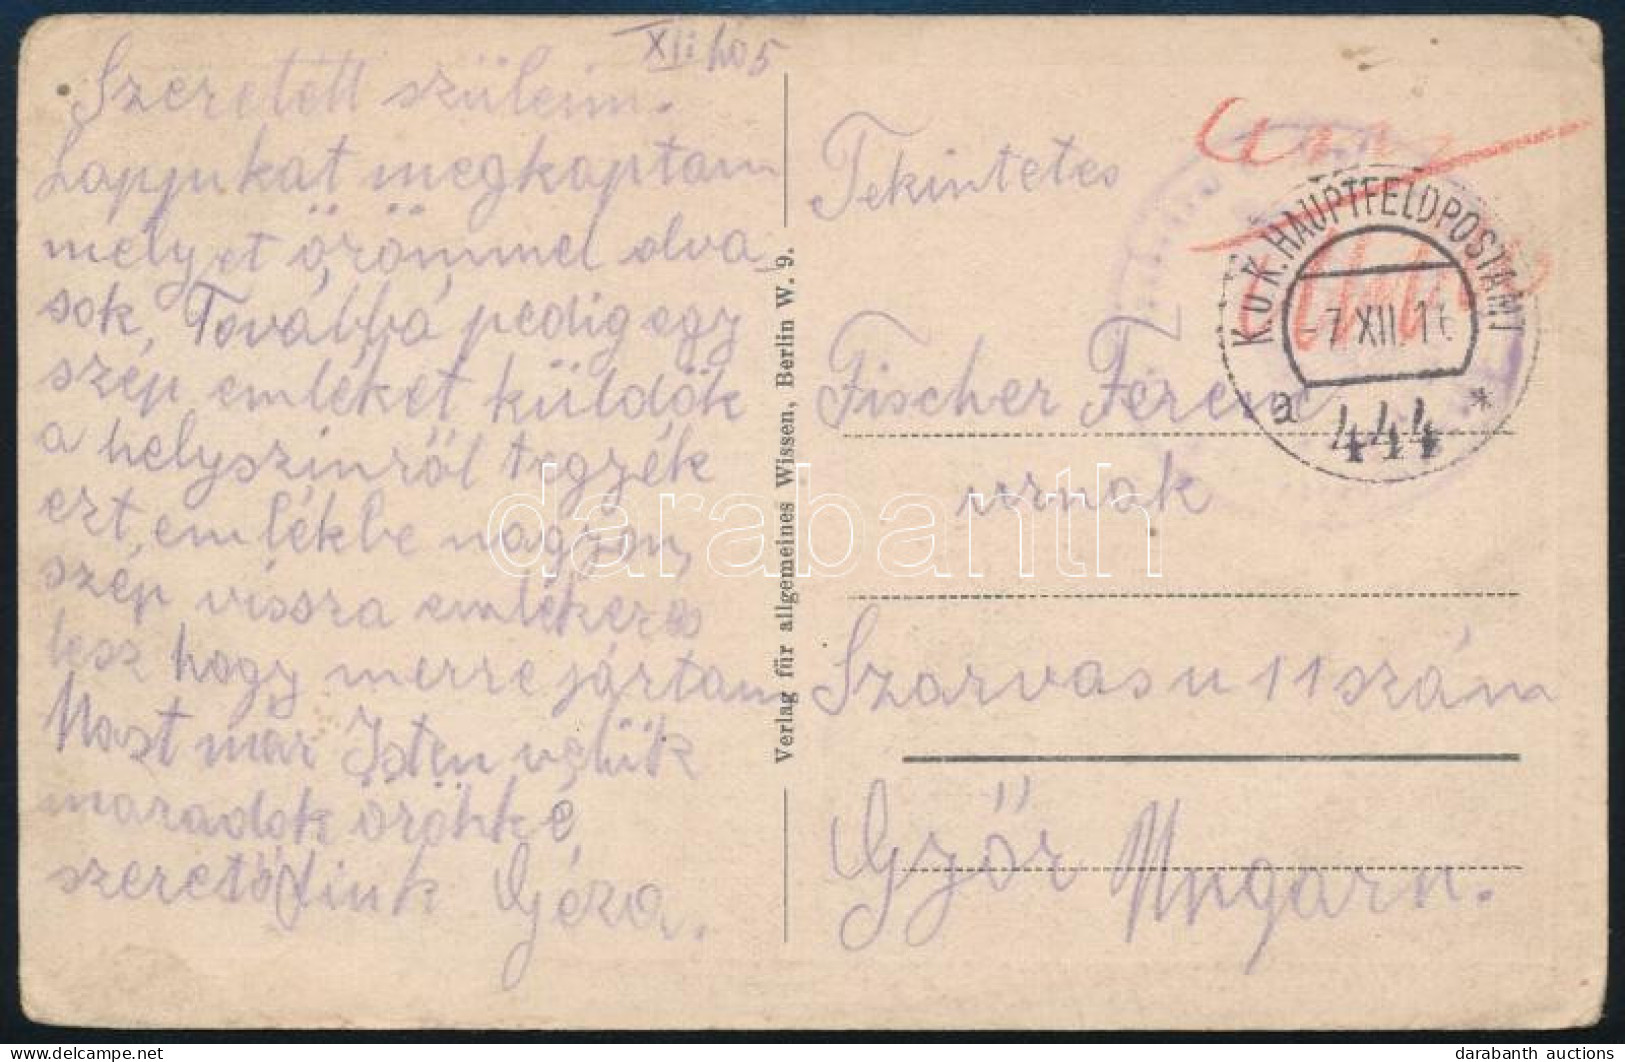 XII hó 5
Szeretett szüleim.
Lapjukat megkaptam
melyet örömmel olva,
sok, Továbbá pedig egy
szép emléket küldök
a helyszinről tegyék
ezt, emlékbe nagyon,
szép vissza emlékezés
lesz hogy merre jártam
Most már Isten velük
maradok örökké,
szerető fiuk Géza.
Verlag für allgemeines Wissen, Berlin W. 9.
Tekintetes
Fischer Ferenc
urnak
Szarvas u 11 szám
Győr Ungarn.
K.u.K. HAUPTFELDPOSTAMT
-7.XII.16
a 444 *
darabanth
darabanth auctions